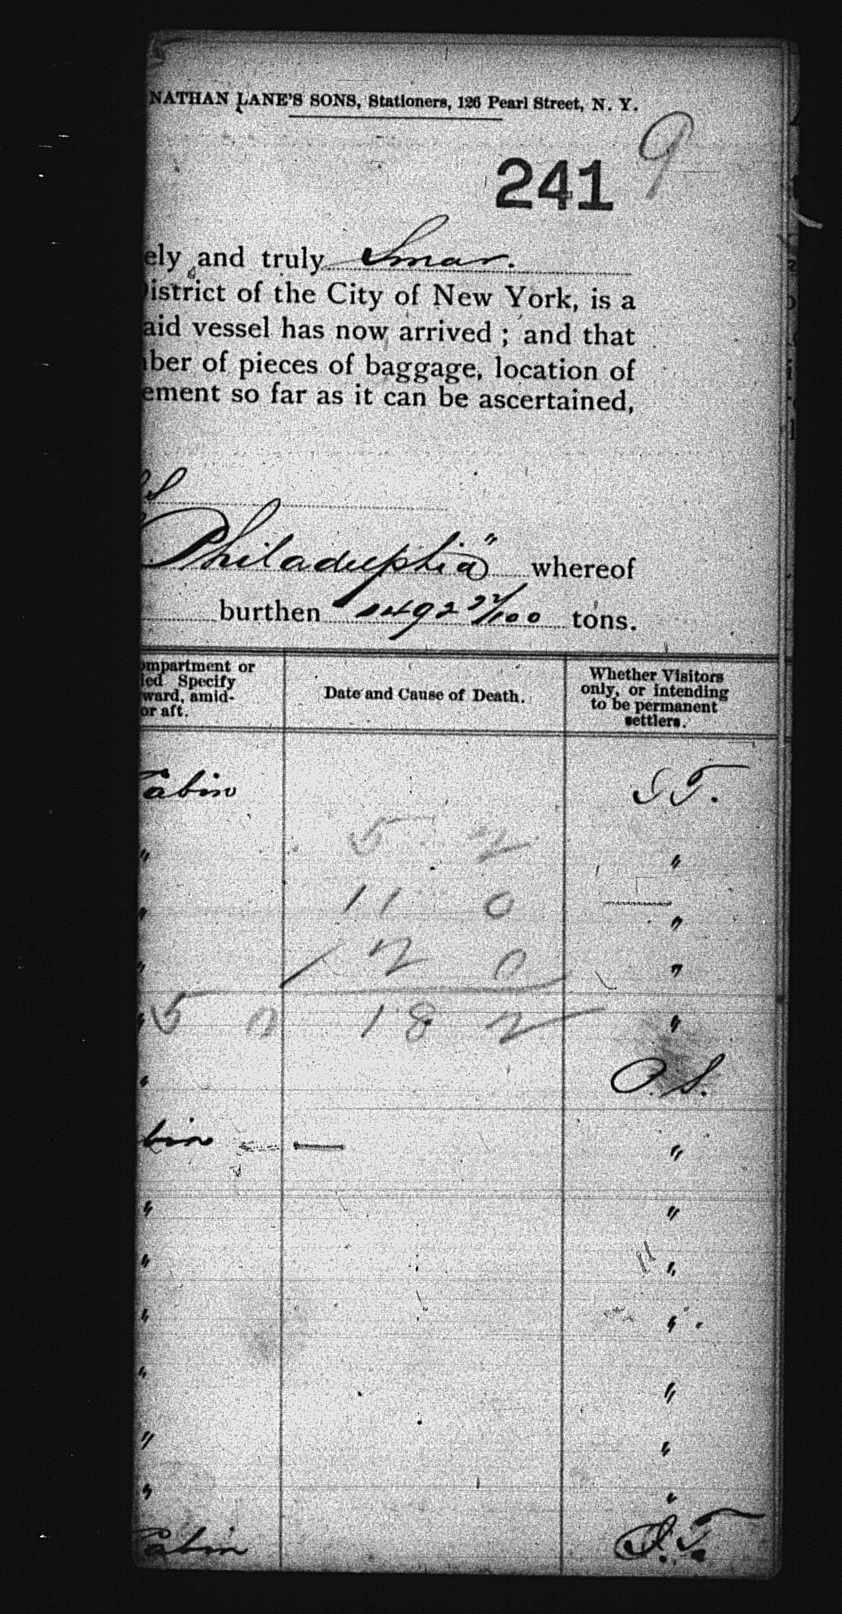 NATHAN LANE'S SONS, Stationers, 126 Pearl Street, N. Y.
241 9
ely and truly
istrict of the City of New York, is a
aid vessel has now arrived ; and that
ber of pieces of baggage, location of
ement so far as it can be ascertained,
Philadelphia" whereof
burthen 1492 27/100 tons.
ompartment or
ied Specify
ward, amid-
or aft.
Date and Cause of Death.
Whether Visitors
only, or intending
to be permanent
settlers.
Cabin
5 2
" "
" 11 0 "
" 1 2 0 "
" 5 0 18 2 "
"
bin "
" "
" 11 "
" "
" "
" "
" "
Cabin